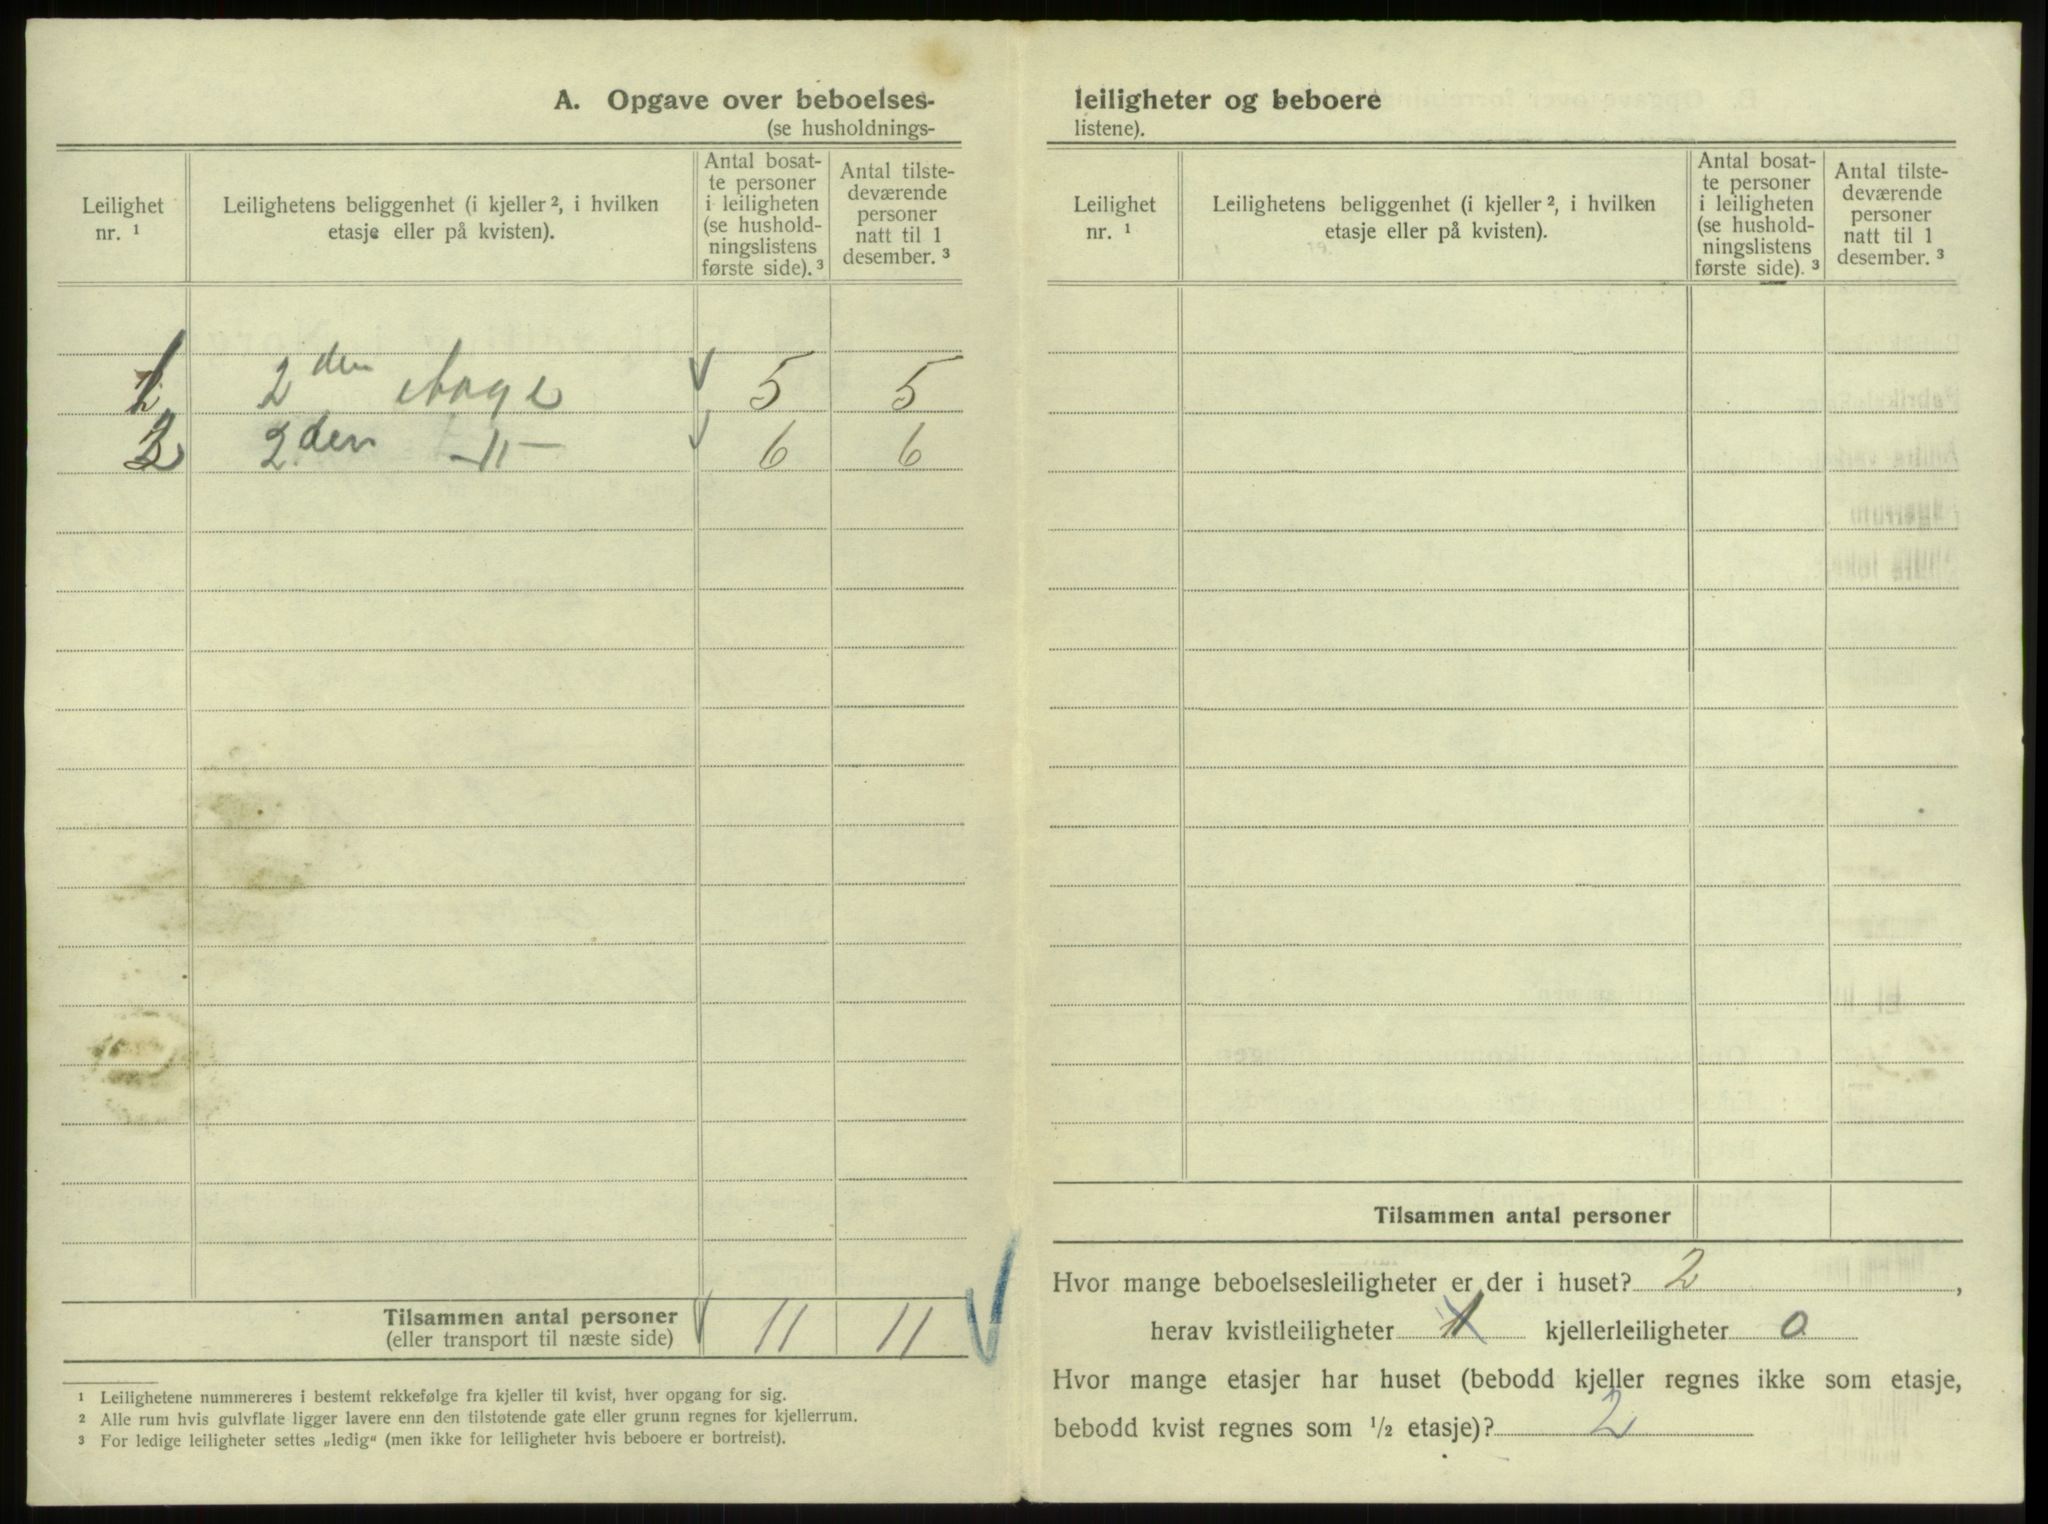 A. Opgave over beboelses-
(se husholdnings-
Leilighet nr. ¹
Leilighetens beliggenhet (i kjeller ², i hvilken etasje eller på kvisten).
Antal bosat-
te personer
i leiligheten
(se hushold-
ningslistens
første side). ³
Antal tilste-
deværende
personer
natt til 1
desember. ³
1 2den etage 5 5
2 2den -11- 6 6
Tilsammen antal personer 11 11
(eller transport til næste side)
¹ Leilighetene nummereres i bestemt rekkefølge fra kjeller til kvist, hver opgang for sig.
² Alle rum hvis gulvflate ligger lavere enn den tilstøtende gate eller grunn regnes for kjellerrum.
³ For ledige leiligheter settes „ledig“ (men ikke for leiligheter hvis beboere er bortreist).
leiligheter og beboere
listene).
Leilighet nr. ¹
Leilighetens beliggenhet (i kjeller ², i hvilken etasje eller på kvisten).
Antal bosat-
te personer
i leiligheten
(se hushold-
ningslistens
første side). ³
Antal tilste-
deværende
personer
natt til 1
desember. ³
Tilsammen antal personer
Hvor mange beboelsesleiligheter er der i huset? 2 ,
herav kvistleiligheter 1 kjellerleiligheter 0
Hvor mange etasjer har huset (bebodd kjeller regnes ikke som etasje,
bebodd kvist regnes som ½ etasje)? 2